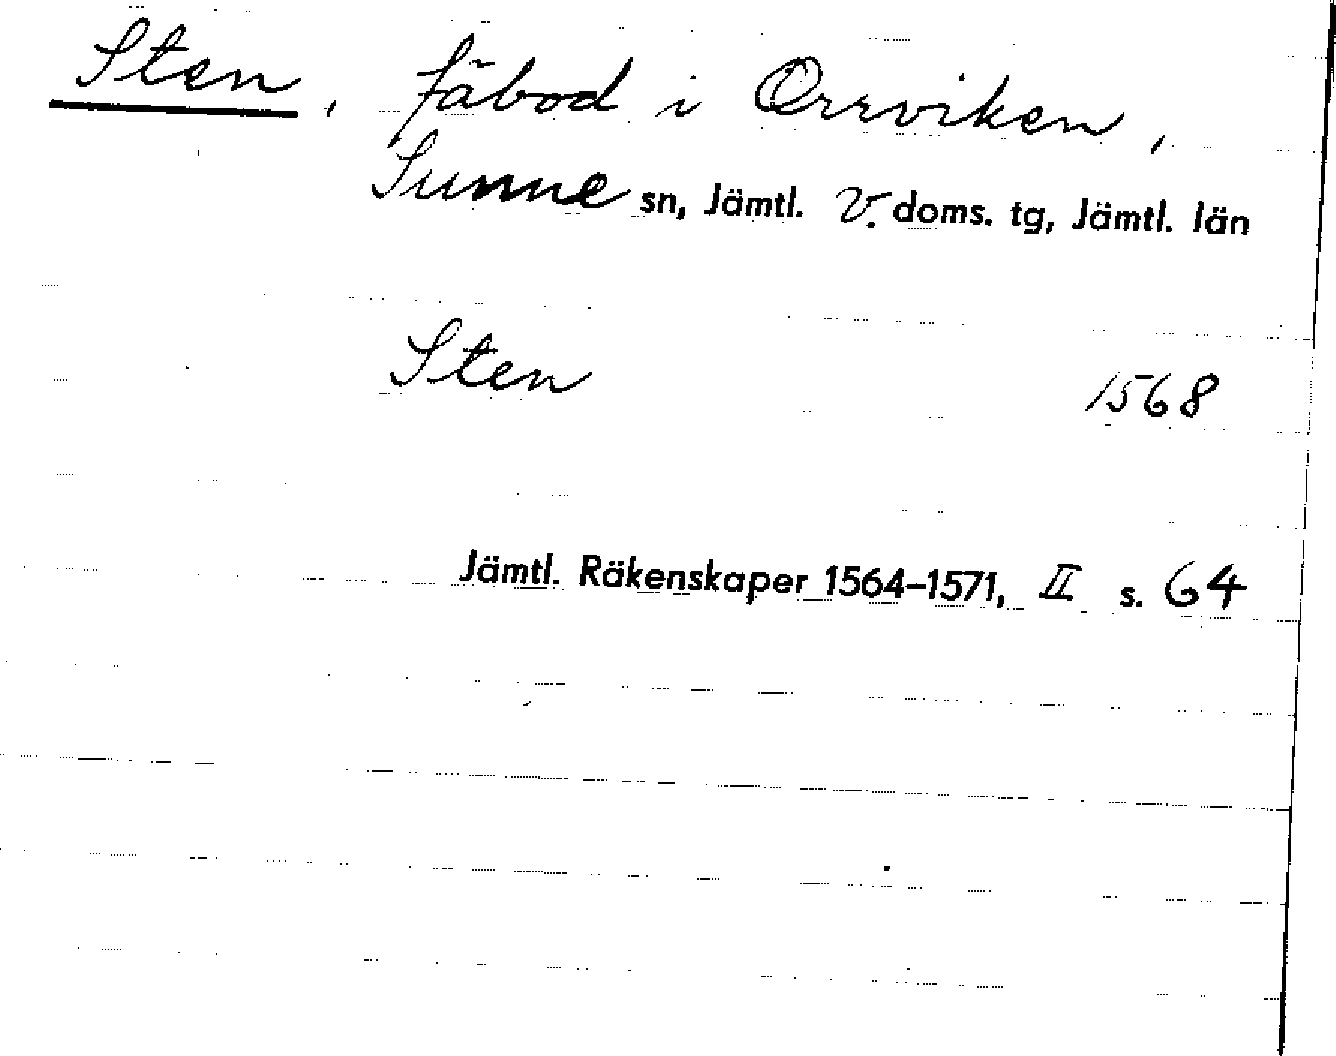 Sten, fäbod i Orrviken,
Sunne sn, Jämtl. V. doms. tg, Jämtl. län
Sten 1568
Jämtl. Räkenskaper 1564–1571, II s. 64